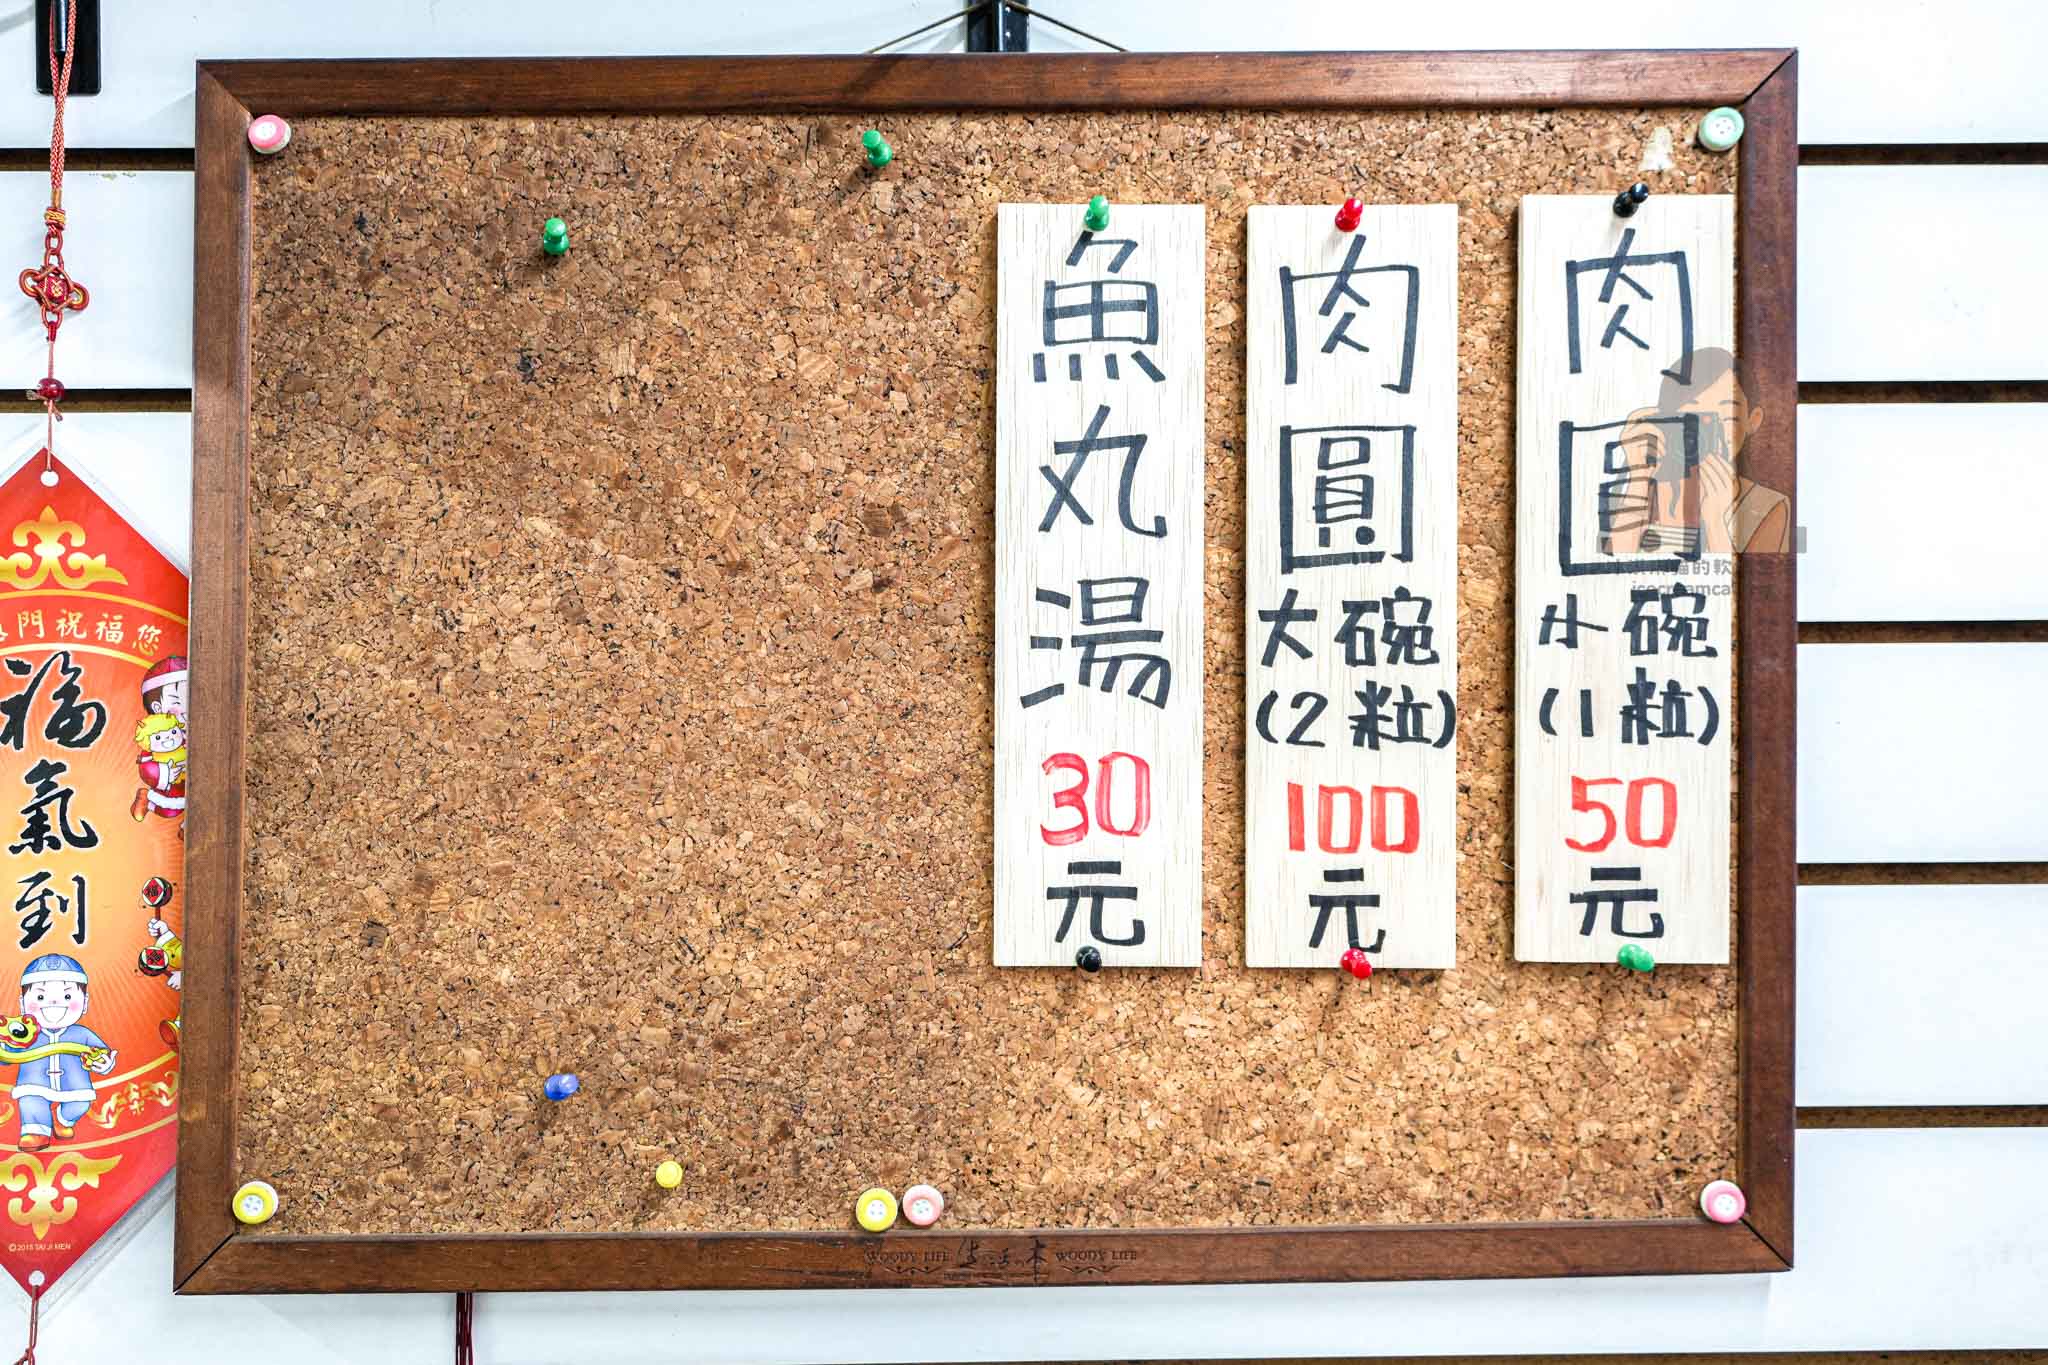 肉圓
小碗
(1粒)
50
元
肉圓
大碗
(2粒)
100
元
魚丸湯
30
元
門祝福您
福氣到
©2015 TAIJI MEN
WOODY LIFE
WOODY LIFE
的軟
icecreamca